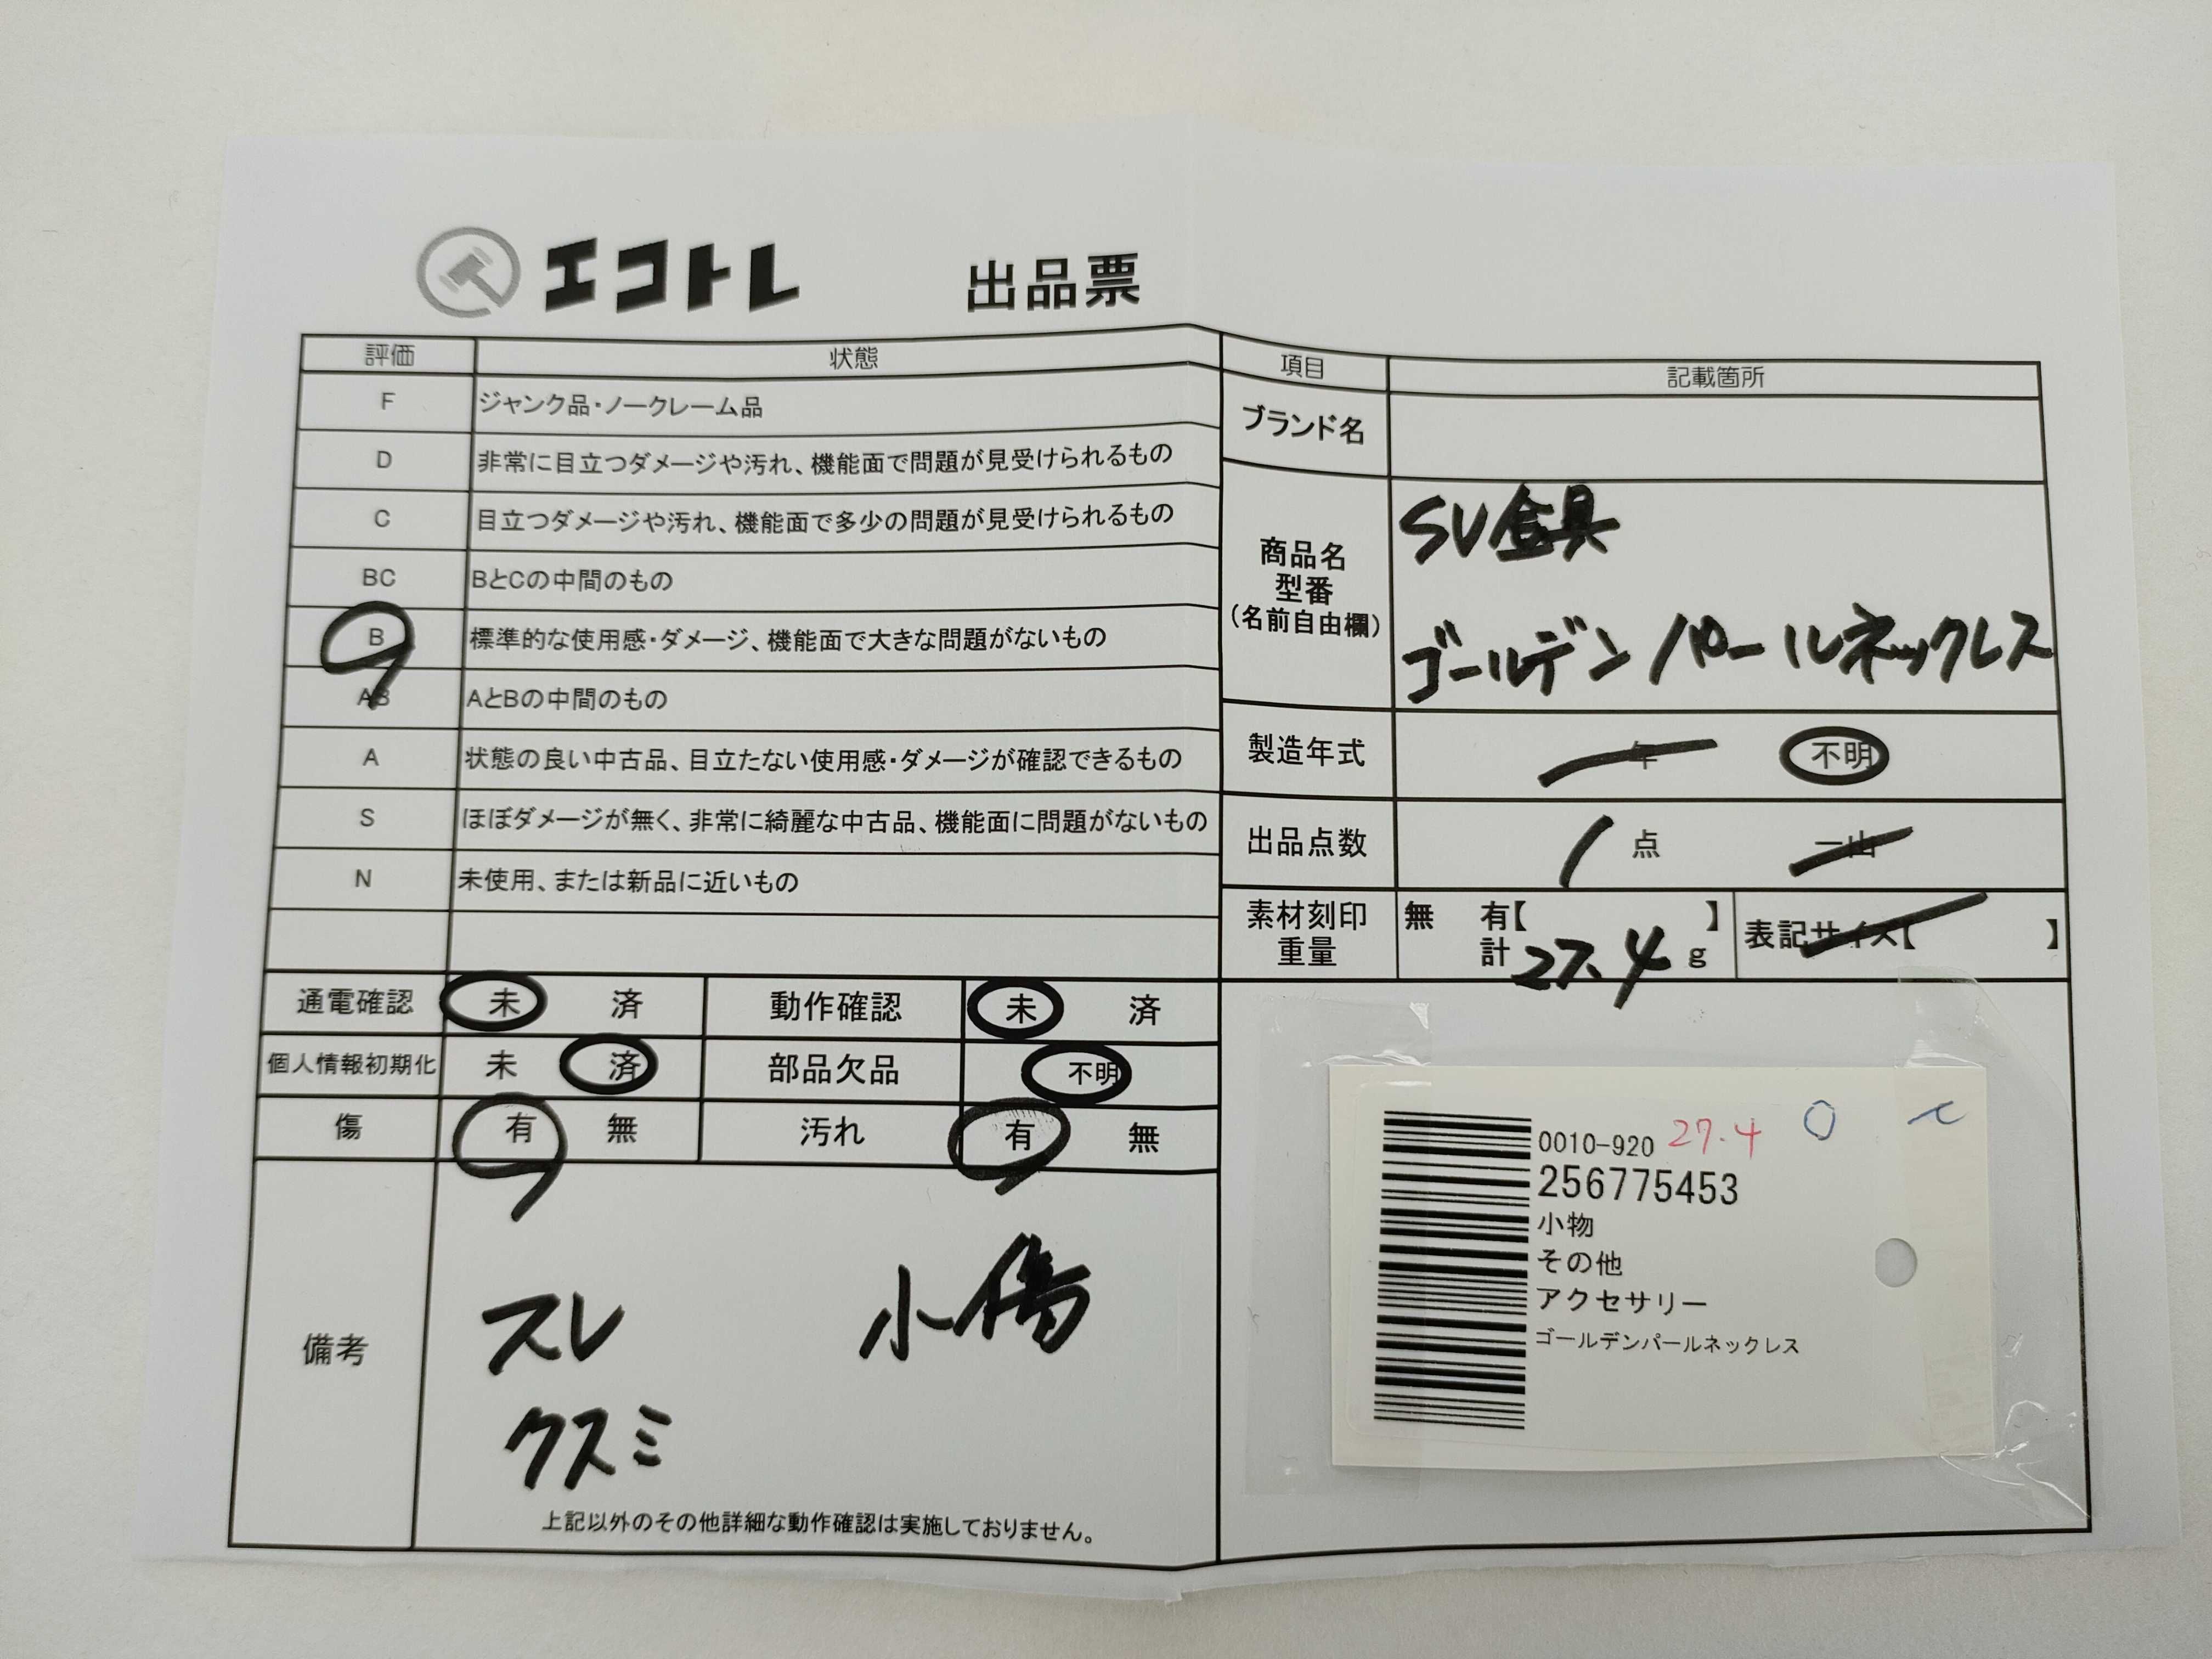 エコトレ 出品票
評価 状態
F ジャンク品・ノークレーム品
D 非常に目立つダメージや汚れ、機能面で問題が見受けられるもの
C 目立つダメージや汚れ、機能面で多少の問題が見受けられるもの
BC BとCの中間のもの
B 標準的な使用感・ダメージ、機能面で大きな問題がないもの
AB AとBの中間のもの
A 状態の良い中古品、目立たない使用感・ダメージが確認できるもの
S ほぼダメージが無く、非常に綺麗な中古品、機能面に問題がないもの
N 未使用、または新品に近いもの
通電確認 未 済 動作確認 未 済
個人情報初期化 未 済 部品欠品 不明
傷 有 無 汚れ 有 無
備考
スレ 小傷
クスミ
上記以外のその他詳細な動作確認は実施しておりません。
項目 記載箇所
ブランド名
商品名
型番
(名前自由欄)
SV金具
ゴールデンパールネックレス
製造年式 年 不明
出品点数 1 点 一山
素材刻印 無 有【 】 表記サイズ【 】
重量 計 27.4 g
0010-920 27.4
256775453
小物
その他
アクセサリー
ゴールデンパールネックレス